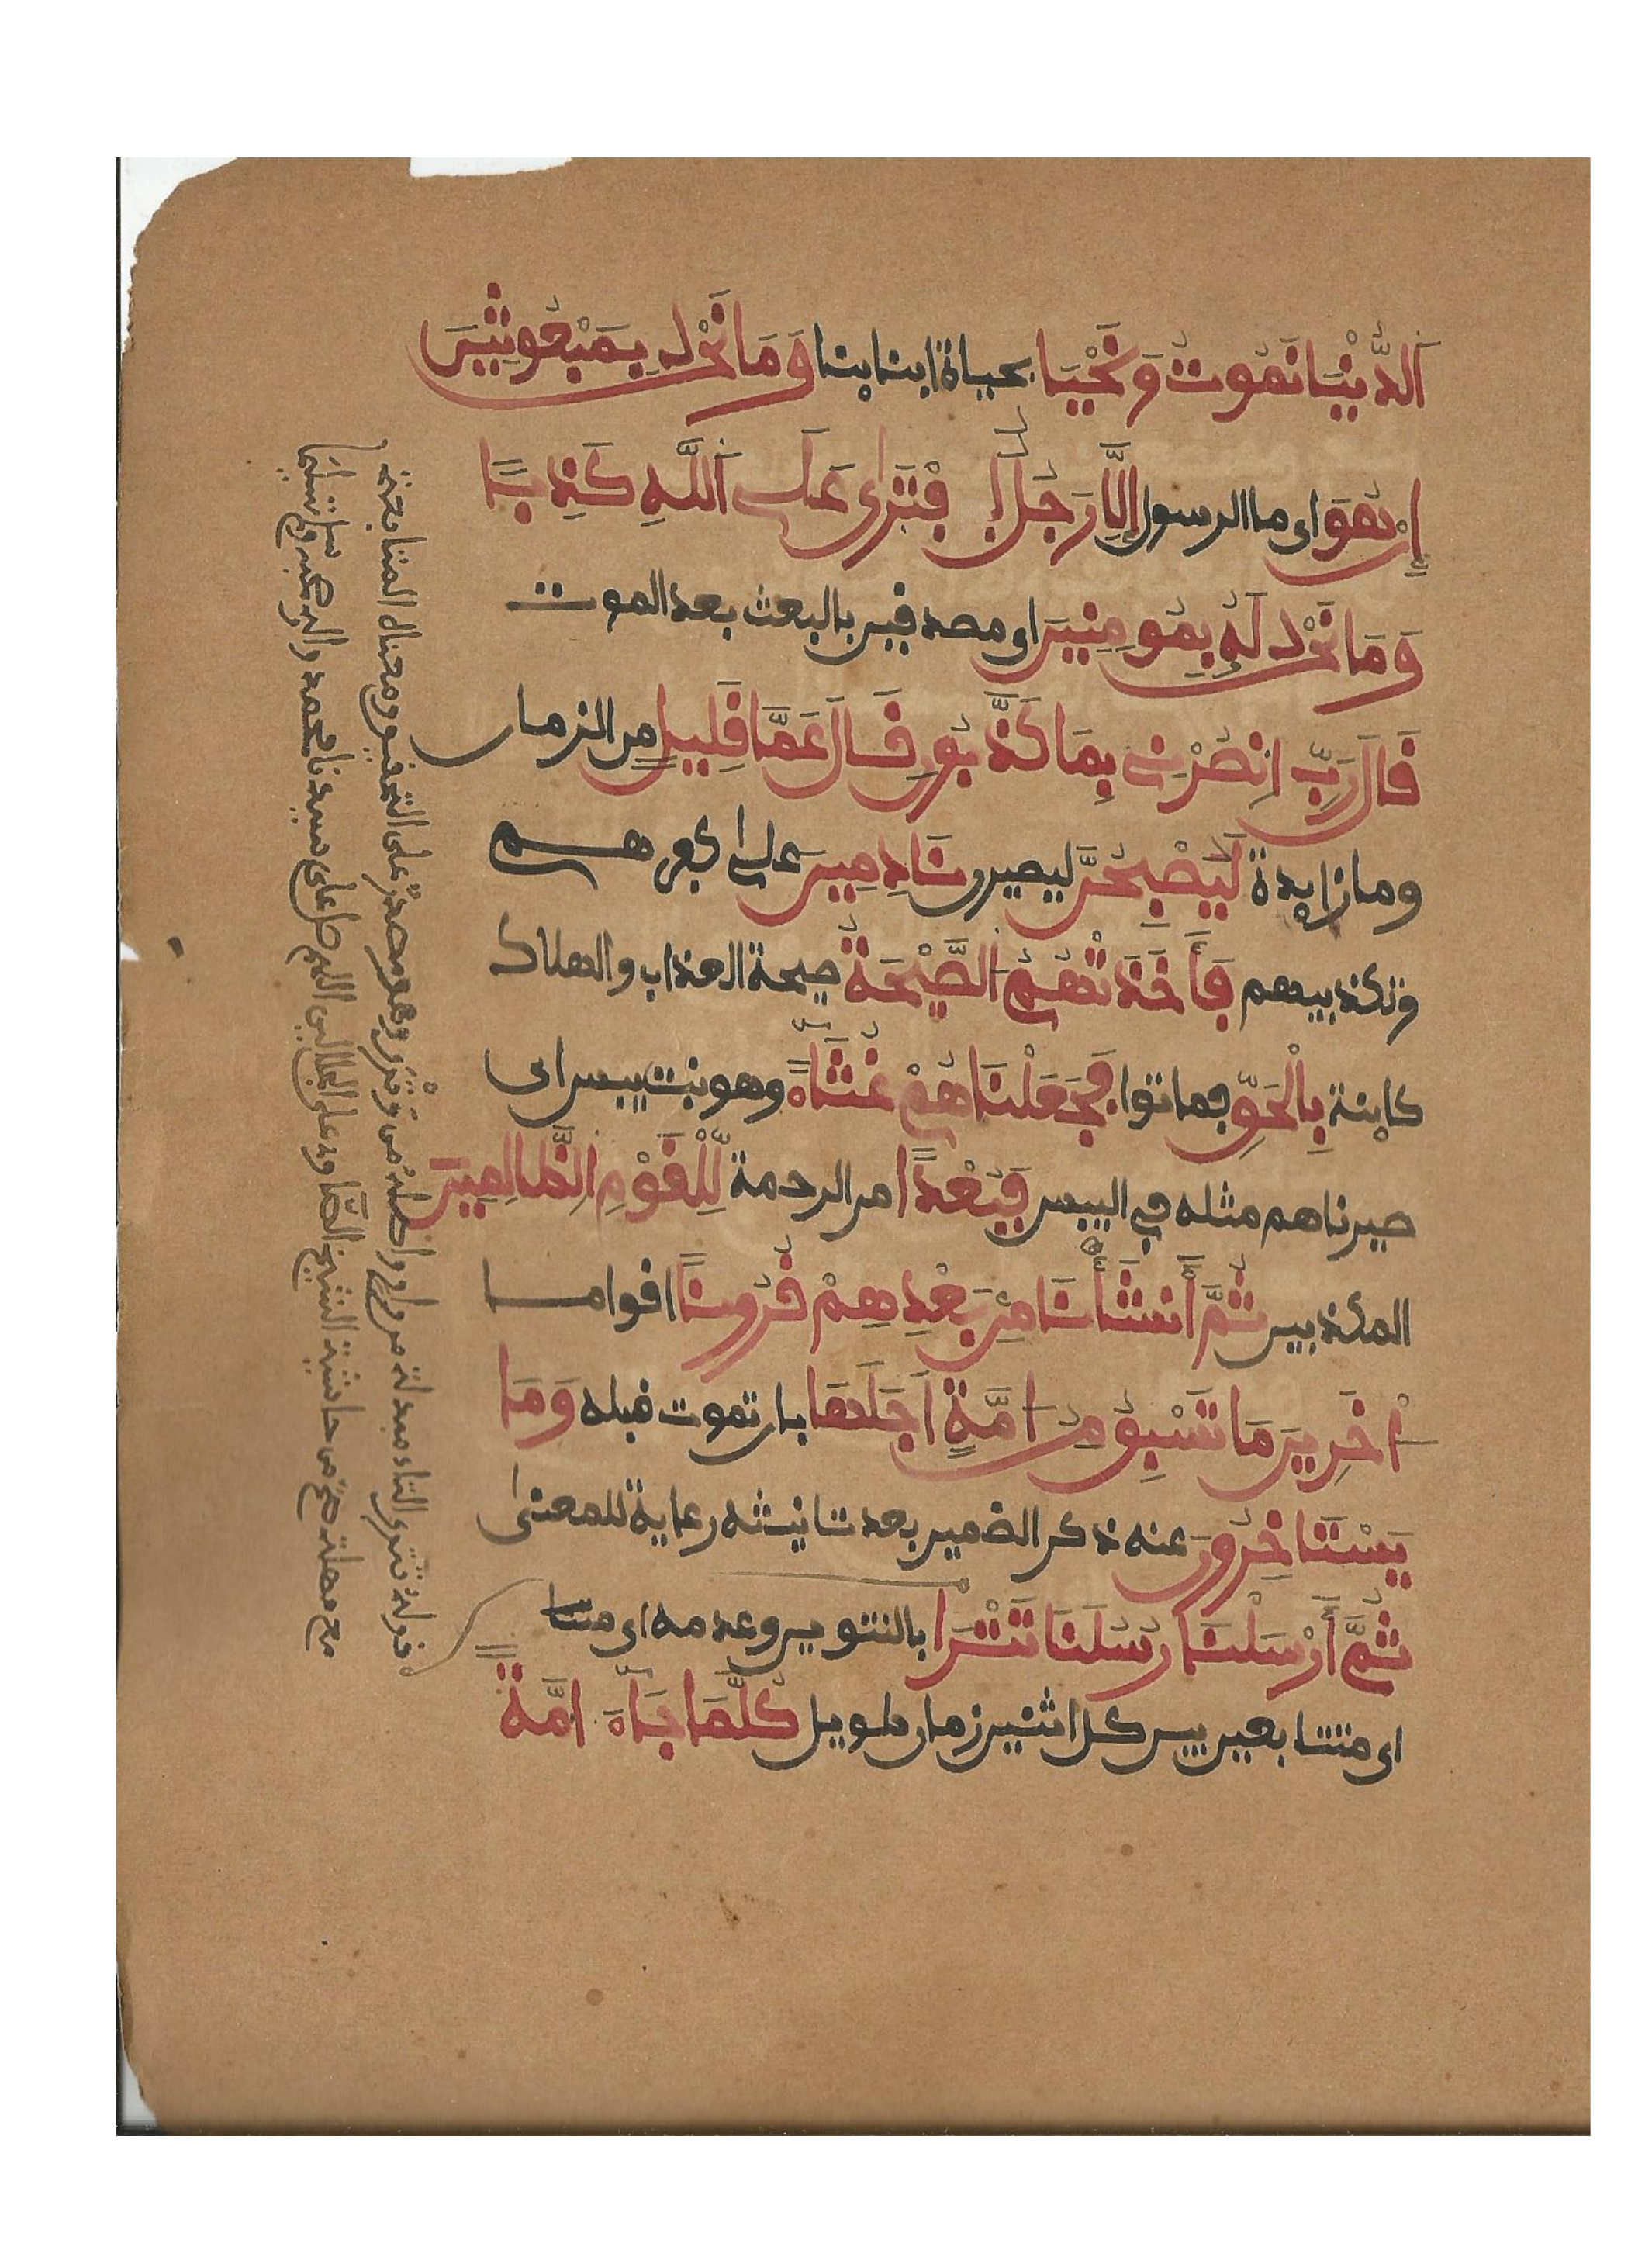 اَلدُّنْيَا نَمُوتُ وَنَحْيَا بحياة ابنائنا وَمَا نَحْنُ بِمَبْعُوثِينَ
إِنْ هُوَ اى ما الرسول إِلَّا رَجُلٌ اِفْتَرَى عَلَى اَللَّهِ كَذِبًا
وَمَا نَحْنُ لَهُ بِمُومِنِينَ اى مصدقين بالبعث بعد الموت
قَالَ رَبِّ انصُرْنِى بِمَا كَذَّبُونِ قَالَ عَمَّا قَلِيلٍ من الزمان
وما زايدة لَيُصْبِحُنَّ ليصيرن نَادِمِينَ على كفرهم
وتكذيبهم فَأَخَذَتْهُمُ اَلصَّيْحَةُ صيحة العذاب والهلاك
كاينة بِالْحَقِّ فماتوا فَجَعَلْنَاهُمْ غُثَاءً وهو نبت يبس اى
صيرناهم مثله في اليبس فَبُعْدًا من الرحمة لِّلْقَوْمِ الظَّالِمِينَ
المكذبين ثُمَّ أَنشَأْنَا مِنۢ بَعْدِهِمْ قُرُونًا اقواما
اخَرِينَ مَا تَسْبِقُ مِنُ امَّةٍ اَجَلَهَا بان تموت قبله وَمَا
يَسْتَاخِرُونَ عنه ذكر الضمير بعد تانيثه رعاية للمعنى
ثُمَّ أَرْسَلْنَا رُسُلَنَا تَتْرَا بالتنوين وعدمه اى متتا
اى متتابعين بين كل اثنين زمان طويل كُلَّمَا جَاءَ امَّةً
قوله تترى التاء مبدلة من واو واصله وترى وهو مصدر على التحقيق ومعناه المتابعة
مع مهلة من حاشية الشيخ الصاوي على الجلالين اللهم صل على سيدنا محمد واله وصحبه وسلم تسليما